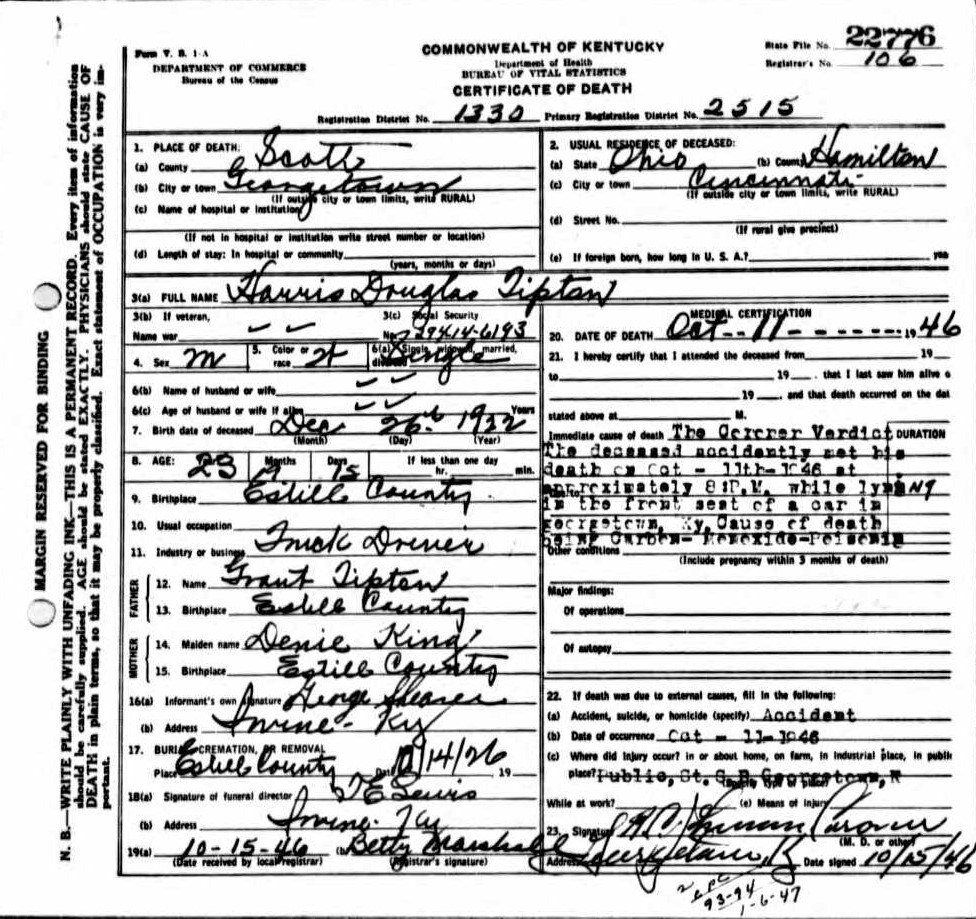 22776
Form V. S. 1-A
COMMONWEALTH OF KENTUCKY
State File No.
DEPARTMENT OF COMMERCE
Department of Health
Registrar's No. 106
Bureau of the Census
BUREAU OF VITAL STATISTICS
CERTIFICATE OF DEATH
Registration District No. 1330 Primary Registration District No. 2515
1. PLACE OF DEATH:
(a) County Scott
(b) City or town Georgetown
(If outside city or town limits, write RURAL)
(c) Name of hospital or institution
(If not in hospital or institution write street number or location)
(d) Length of stay: In hospital or community
(years, months or days)
2. USUAL RESIDENCE OF DECEASED:
(a) State Ohio (b) County Hamilton
(c) City or town Cincinnati
(If outside city or town limits, write RURAL)
(d) Street No.
(If rural give precinct)
(e) If foreign born, how long in U. S. A.? yea
3(a) FULL NAME Harris Douglas Tipton
3(b) If veteran,
Name war
3(c) Social Security
No. 29414-6193
4. Sex M 5. Color or race 6(a) Single, widowed, married, Single
6(b) Name of husband or wife
6(c) Age of husband or wife if alive Years
7. Birth date of deceased Dec 26th
(Month) (Day) (Year)
8. AGE: 23 Months 9 Days 15 If less than one day
hr. min.
9. Birthplace Estill County
10. Usual occupation
11. Industry or business Truck Driver
FATHER
12. Name Grant Tipton
13. Birthplace Estill County
MOTHER
14. Maiden name Denie King
15. Birthplace Estill County
16(a) Informant's own signature George Shearer
(b) Address Irvine - Ky
17. BURIAL, CREMATION, OR REMOVAL
Place Estill County Date 10/14/26 19
18(a) Signature of funeral director Lewis
(b) Address Irvine - Ky
19(a) 10-15-46 (b) Betty Marshall
(Date received by local registrar) (Registrar's signature)
MEDICAL CERTIFICATION
20. DATE OF DEATH Oct - 11 - 1946
21. I hereby certify that I attended the deceased from 19
to 19 . that I last saw him alive o
19 . and that death occurred on the dat
stated above at M.
Immediate cause of death The Cororer Verdict DURATION
The deceased accidently met his
death on Oct - 11th-1946 at
approximately 8:P.M. while lyinNG
in the front seat of a car in
georgetown, Ky. Cause of death
being Carbon- Monoxide-Poisonig
Due to
Other conditions
(Include pregnancy within 3 months of death)
Major findings:
Of operations
Of autopsy
22. If death was due to external causes, fill in the following:
(a) Accident, suicide, or homicide (specify) Accident
(b) Date of occurrence Oct - 11-1946
(c) Where did injury occur? In or about home, on farm, in industrial place, in publi
place? Public, St. Georgetown, K
(Specify type of place)
While at work? (e) Means of injury
23. Signature Coroner
(M. D. or other)
Address Georgetown, Ky Date signed 10/15/46
93-94
1-6-47
MARGIN RESERVED FOR BINDING
N. B.—WRITE PLAINLY WITH UNFADING INK—THIS IS A PERMANENT RECORD. Every item of information
should be carefully supplied. AGE should be stated EXACTLY. PHYSICIANS should state CAUSE OF
DEATH in plain terms, so that it may be properly classified. Exact statement of OCCUPATION is very im-
portant.